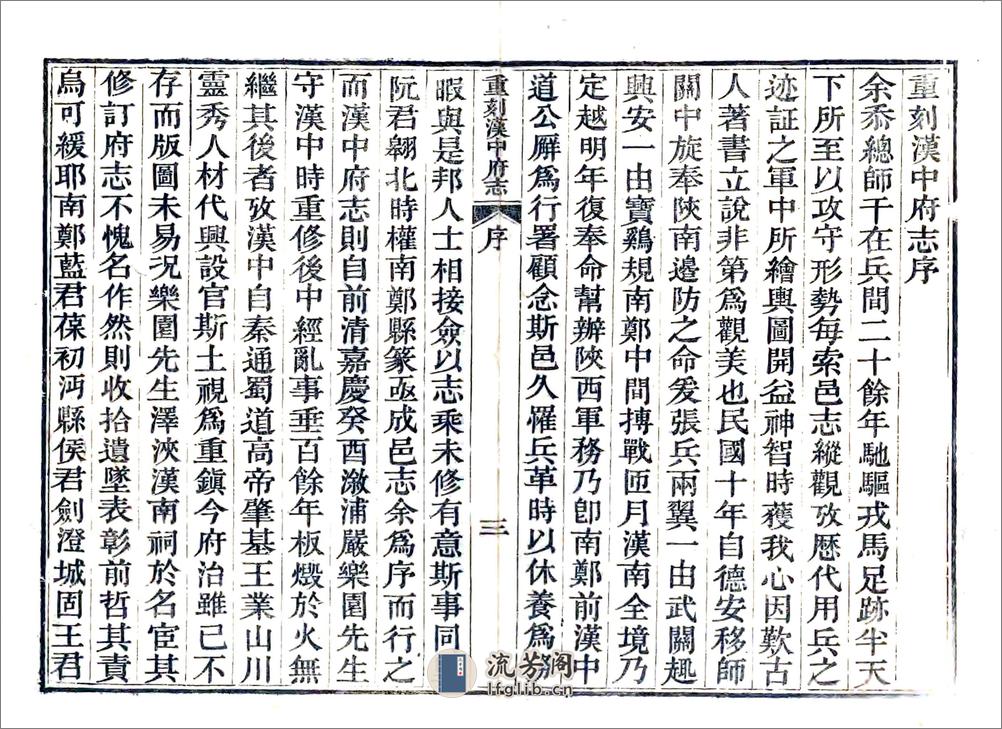 重刻漢中府志序
余忝總師干在兵間二十餘年馳驅戎馬足跡半天
下所至以攻守形勢每索邑志縱觀攷歷代用兵之
迹証之軍中所繪輿圖開益神智時獲我心因歎古
人著書立說非第爲觀美也民國十年自德安移師
關中旋奉陝南邊防之命爰張兵兩翼一由武關趨
興安一由寶鷄規南鄭中間搏戰匝月漢南全境乃
定越明年復奉命幫辦陝西軍務乃卽南鄭前漢中
道公廨爲行署顧念斯邑久罹兵革時以休養爲務
重刻漢中府志 序 三
暇與是邦人士相接僉以志乘未修有意斯事同
阮君翱北時權南鄭縣篆亟成邑志余爲序而行之
而漢中府志則自前清嘉慶癸酉漵浦嚴樂園先生
守漢中時重修後中經亂事垂百餘年板燬於火無
繼其後者攷漢中自秦通蜀道高帝肇基王業山川
靈秀人材代興設官斯土視爲重鎮今府治雖已不
存而版圖未易況樂園先生澤浹漢南祠於名宦其
修訂府志不愧名作然則收拾遺墜表彰前哲其責
烏可緩耶南鄭藍君葆初沔縣侯君劍澄城固王君
流芳閣
lfglib.cn